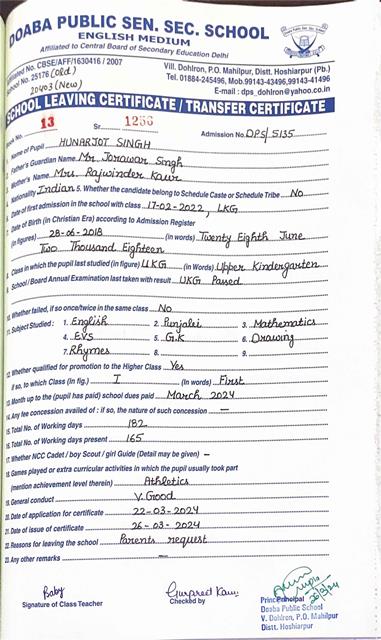 DOABA PUBLIC SEN. SEC. SCHOOL
ENGLISH MEDIUM
Affiliated to Central Board of Secondary Education Delhi
Affiliated No. CBSE/AFF/1630416 / 2007
School No. 25176 (Old)
20403 (New)
Vill. Dohlron, P.O. Mahilpur, Distt. Hoshiarpur (Pb.)
Tel. 01884-245496, Mob.99143-43496, 99141-41496
E-mail : dps_dohlron@yahoo.co.in
SCHOOL LEAVING CERTIFICATE / TRANSFER CERTIFICATE
Book No. 13 Sr 1256 Admission No. DPS/5135
Name of Pupil HUNARJOT SINGH
Father's Guardian Name Mr. Jorawar Singh
Mother's Name Mrs. Rajwinder Kaur
Nationality Indian 5. Whether the candidate belong to Schedule Caste or Schedule Tribe No
Date of first admission in the school with class 17-02-2022, LKG
Date of Birth (in Christian Era) according to Admission Register
(in figures) 28-06-2018 (in words) Twenty Eighth June
Two Thousand Eighteen
8. Class in which the pupil last studied (in figure) UKG (in Words) Upper Kindergarten
School / Board Annual Examination last taken with result UKG Passed
10. Whether failed, if so once/twice in the same class No
11. Subject Studied : 1. English 2. Punjabi 3. Mathematics
4. EVS 5. G.K 6. Drawing
7. Rhymes 8. 9.
12. Whether qualified for promotion to the Higher Class Yes
if so, to which Class (in fig.) I (In words) First
13. Month up to the (pupil has paid) school dues paid March 2024
14. Any fee concession availed of : if so, the nature of such concession –
15. Total No. of Working days 182
16. Total No. of Working days present 165
17. Whether NCC Cadet / boy Scout / girl Guide (Detail may be given) –
18. Games played or extra curricular activities in which the pupil usually took part
(mention achievement level therein) Athletics
19. General conduct V. Good
20. Date of application for certificate 22-03-2024
21. Date of issue of certificate 26-03-2024
22. Reasons for leaving the school Parents request
23. Any other remarks –
Baby
Signature of Class Teacher
Gurpreet Kaur
Checked by
26/3/24
Principal
Doaba Public School
V. Dohlron, P.O. Mahilpur
Distt. Hoshiarpur